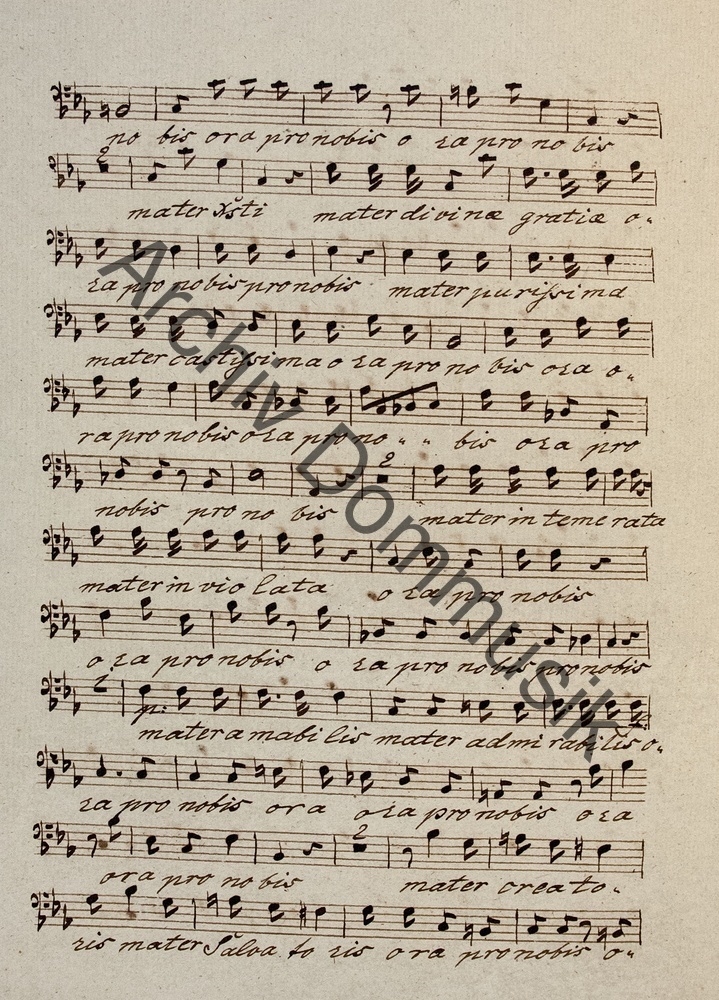 no bis ora pro nobis o ra pro no bis
2
mater Xsti mater divinæ gratiæ o„
ra pro nobis pro nobis mater purissima
mater castissima o ra pro no bis ora o„
ra pro nobis ora pro no „ „ bis ora pro
2
nobis pro no bis mater in teme rata
mater in vio lata o ra pro nobis
o ra pro nobis o ra pro nobis pro nobis
2
p:
mater amabilis mater admi rabilis o„
ra pro nobis ora ora pro nobis ora
2
ora pro no bis mater creato„
ris mater Salva to ris ora pro nobis o„
Archiv Dommusik